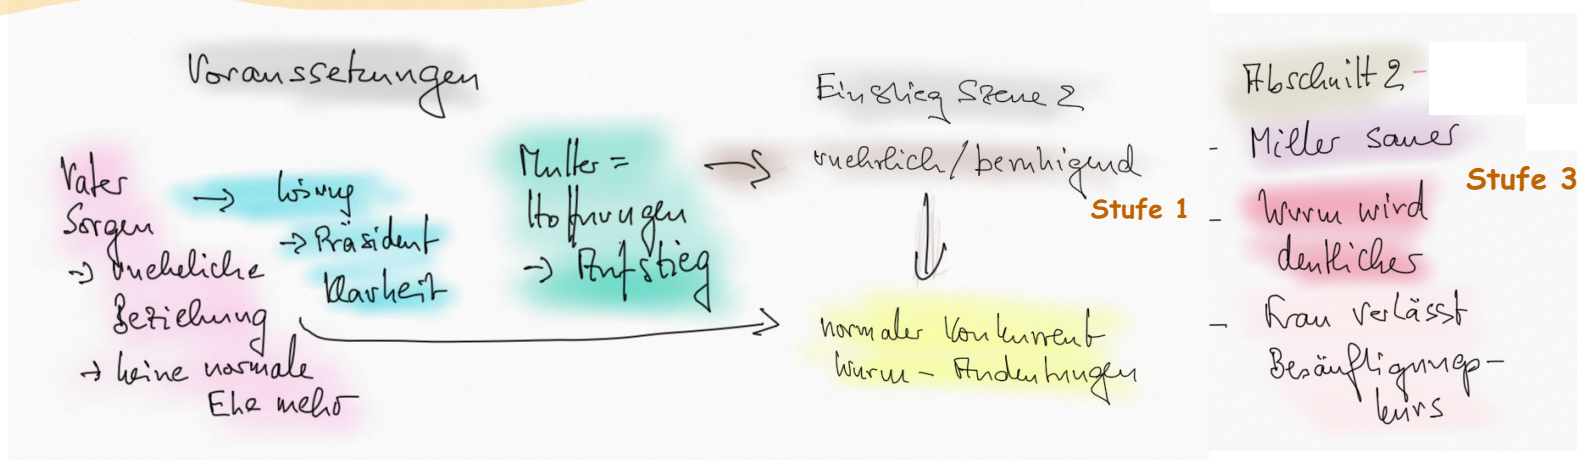 Voraussetzungen
Vater
Sorgen
→ uneheliche
Beziehung
→ keine normale
Ehe mehr
→ Lösung
→ Präsident
Klarheit
Mutter =
Hoffnungen
→ Aufstieg
→
Einstieg Szene 2
/ beruhigend
Stufe 1
normaler Konkurrent
Wurm - Andeutungen
Abschnitt 2 -
- Miller sauer
Stufe 3
- Wurm wird
deutlicher
- Frau verlässt
Besänftigungs-
kurs